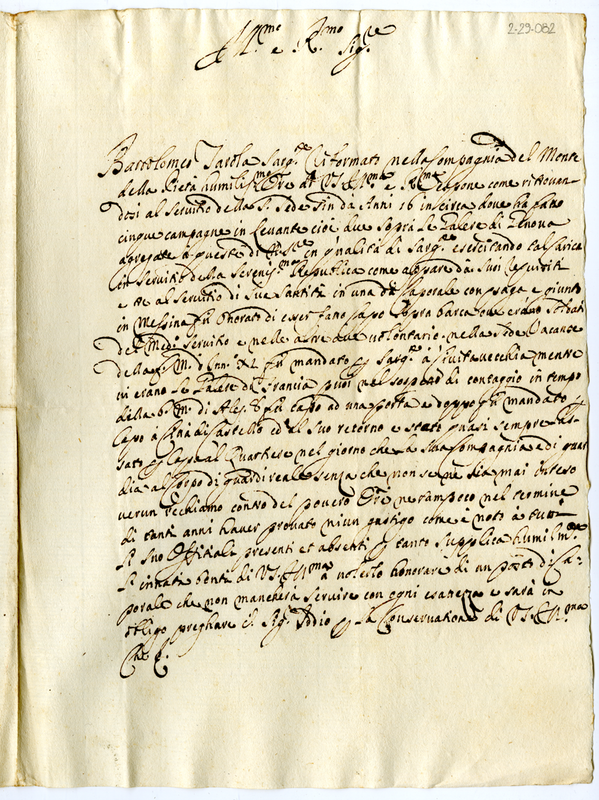 2-29-082
Ill.mo e R.mo Sig.re
Bartolomeo Tarola Sarg.te Riformato nella Compagnia del Monte
della Pietà humiliss.mo Ore di VS Ill.ma e R.ma espone come ritrovan-
dosi al Servitio della S. Sede sin da Anni 16 incirca dove ha fatto
cinque campagne in Levante cioè due sopra le Galere di Genova
agregate a queste di in qualità di Sarg.te esercitando tal carica
in servitio della Sereniss.ma Republica come appare da suoi requisiti
e tre al Servitio di Sua Santità in una da Caporale con paga e giunto
in Messina fu honorato di esser fatto Capo sopra barca ove erano soldati
del Med.o Servitio e nelle altre due volontario. nella Sede Vacante
della S. M. d'Inn. XI fu mandato p Sarg.te a Civita vecchia mentre
vi erano le Galere di Francia puoi nel sospetto di contaggio in tempo
della S. M. di Ales. 8 fu capo ad una porta e doppo fu mandato p
Capo a Città di Castello ed al suo retorno e stato quasi sempre las-
sato p Cap.le al Quartiere nel giorno che la sua Compagnia è di guar-
dia al Corpo di guardi reale senza che non se ne sia mai inteso
verun rechiamo contro del povero Ore ne tampoco nel termine
di tanti anni haver provato niun gastigo come è noto à tutti
li suoi Offitiali presenti et absenti p tanto supplica humilm.te
l' innata di VS Ill.ma a volerlo honorare di un di Ca-
porale che non mancherà servire con ogni esatezza e sarà in
obligo preghare il Sig.r Iddio p la Conservatione di VS. Ill.ma
Che